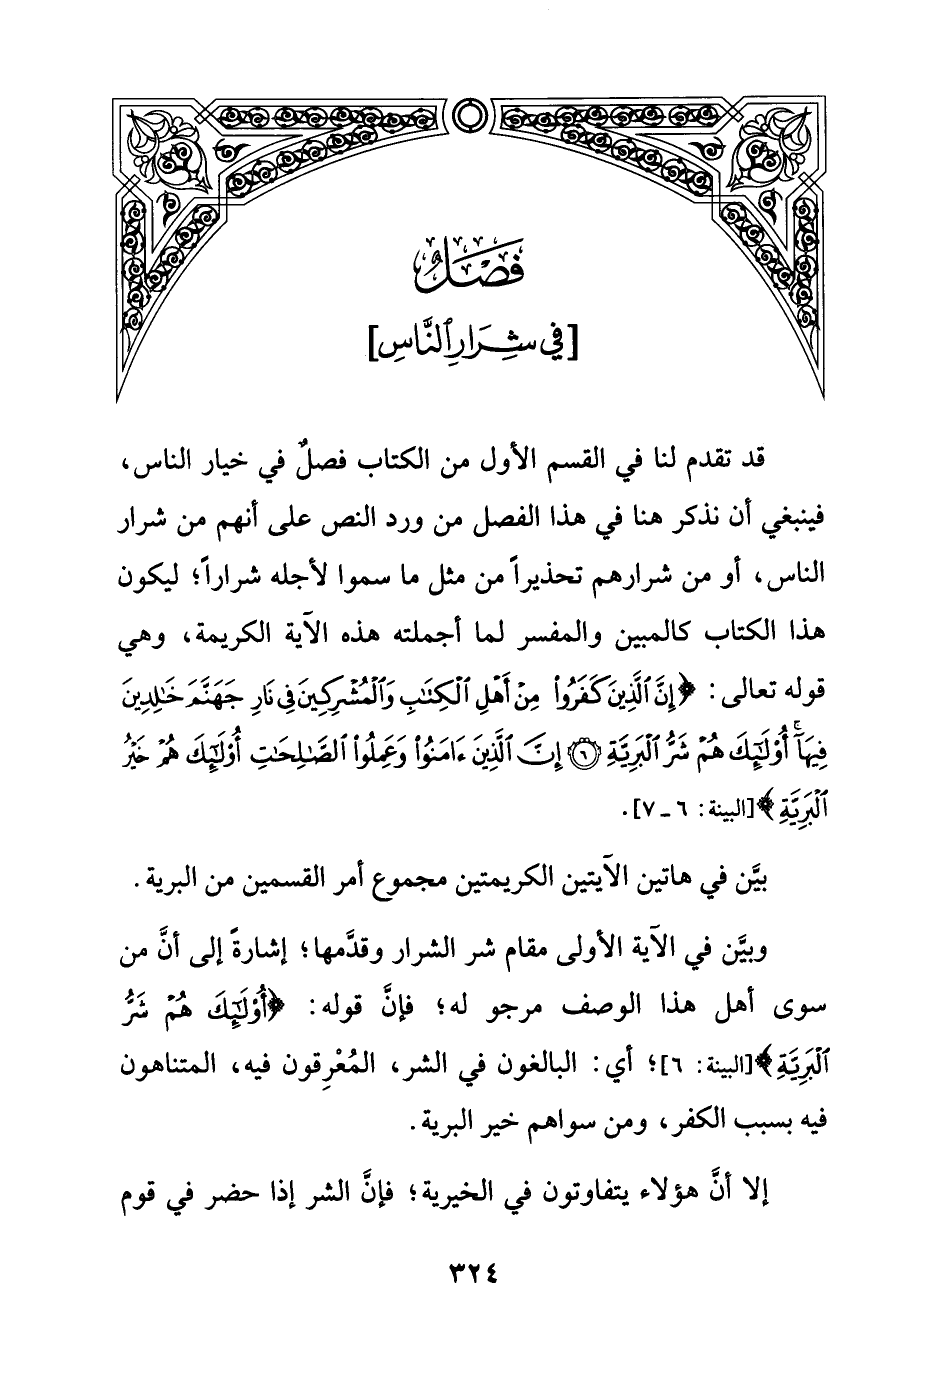 فَصْلٌ
[في شِرَارِ ٱلنَّاسِ]
قد تقدم لنا في القسم الأول من الكتاب فصلٌ في خيار الناس،
فينبغي أن نذكر هنا في هذا الفصل من ورد النص على أنهم من شرار
الناس، أو من شرارهم تحذيراً من مثل ما سموا لأجله شراراً؛ ليكون
هذا الكتاب كالمبين والمفسر لما أجملته هذه الآية الكريمة، وهي
قوله تعالى: ﴿إِنَّ ٱلَّذِينَ كَفَرُوا۟ مِنْ أَهْلِ ٱلْكِتَٰبِ وَٱلْمُشْرِكِينَ فِى نَارِ جَهَنَّمَ خَٰلِدِينَ
فِيهَآ ۚ أُو۟لَٰٓئِكَ هُمْ شَرُّ ٱلْبَرِيَّةِ ۝٦ إِنَّ ٱلَّذِينَ ءَامَنُوا۟ وَعَمِلُوا۟ ٱلصَّٰلِحَٰتِ أُو۟لَٰٓئِكَ هُمْ خَيْرُ
ٱلْبَرِيَّةِ﴾ [البينة: ٦ ـ ٧].
بيَّن في هاتين الآيتين الكريمتين مجموع أمر القسمين من البرية.
وبيَّن في الآية الأولى مقام شر الشرار وقدَّمها؛ إشارةً إلى أنَّ من
سوى أهل هذا الوصف مرجو له؛ فإنَّ قوله: ﴿أُو۟لَٰٓئِكَ هُمْ شَرُّ
ٱلْبَرِيَّةِ﴾ [البينة: ٦]؛ أي: البالغون في الشر، المُعْرِقون فيه، المتناهون
فيه بسبب الكفر، ومن سواهم خير البرية.
إلا أنَّ هؤلاء يتفاوتون في الخيرية؛ فإنَّ الشر إذا حضر في قوم
٣٢٤